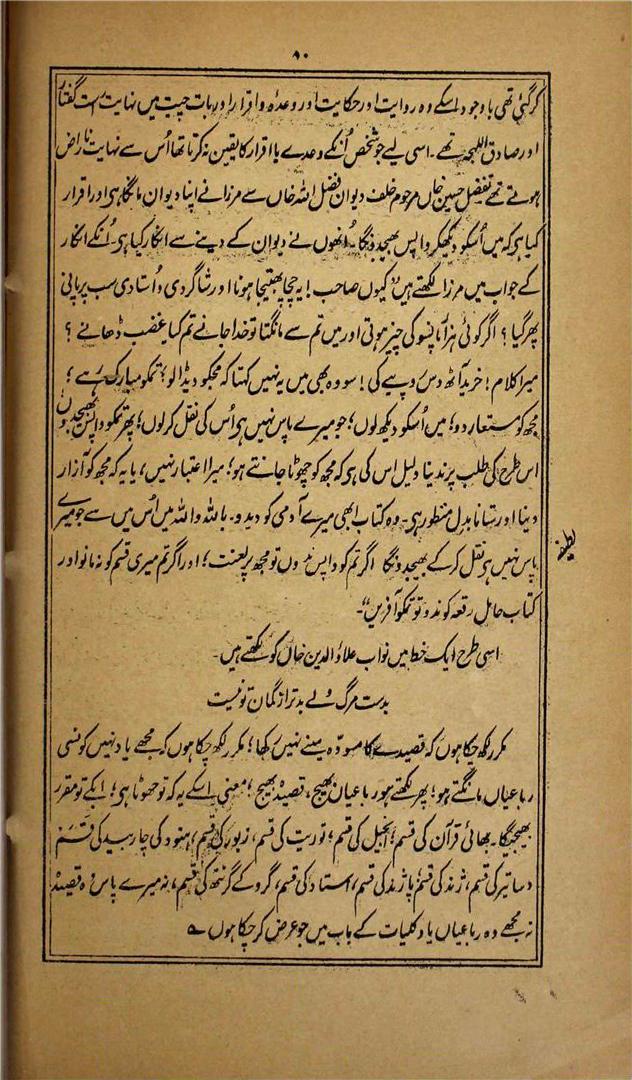 ۹۰
کر گئی تھی باوجود اسکے وہ روایت اور حکایت اور وعدہ و اقرار اور بات چیت میں نہایت راست گفتار
اور صادق اللہجہ تھے۔ اسی لیے جو شخص اُنکے وعدے یا اقرار کا یقین نہ کرتا تھا اُس سے نہایت ناراض
ہوتے تھے تفضل حسین خاں مرحوم خلف دیوان فضل اللہ خاں سے مرزا نے اپنا دیوان مانگا ہی اور اقرار
کیا ہی کہ میں اُسکو دیکھکر واپس بھیجدونگا۔ اُنھوں نے دیوان کے دینے سے انکار کیا ہی۔ اُنکے انکار
کے جواب میں مرزا لکھتے ہیں "کیوں صاحب! یہ چچا بھتیجا ہونا اور شاگردی و اُستادی سب پر پانی
پھر گیا؟ اگر کوئی ہزار پانسو کی چیز ہوتی اور میں تم سے مانگتا تو خدا جانے تم کیا غضب ڈھاتے؟
میرا کلام! خرید آٹھ دس روپیے کی! سو وہ بھی میں یہ نہیں کہتا کہ مجکو دیڈالو؛ تمکو مبارک رہے؛
مجھ کو مستعار دو؛ میں اُسکو دیکھ لوں؛ جو میرے پاس نہیں ہی اُس کی نقل کر لوں؛ پھر تمکو واپس بھیجدوں
اس طرح کی طلب پر ندینا دلیل اس کی ہی کہ مجھ کو جھوٹا جانتے ہو؛ میرا اعتبار نہیں، یا یہ کہ مجھ کو آزار
دینا اور ستانا بدل منظور ہی۔ وہ کتاب ابھی میرے آدمی کو دیدو۔ باللہ واللہ میں اُس میں سے جو میرے
لطیفہ
پاس نہیں ہی نقل کر کے بھیجدونگا اگر تم کو واپس ندوں تو مجھ پر لعنت؛ اور اگر تم میری قسم کو نہ مانو اور
کتاب حامل رقعہ کو ندو تو تمکو آفرین"۔
اسی طرح ایک خط میں نواب علاؤ الدین خاں کو لکھتے ہیں۔
بدست مرگ ولے بدتر از گمان تو نیست
مکرر لکھ چکا ہوں کہ قصیدے کا مسودہ مینے نہیں رکھا؛ مکرر لکھ چکا ہوں کہ مجھے یاد نہیں کونسی
رباعیاں مانگتے ہو؛ پھر لکھتے ہو رباعیاں بھیج، قصیدہ بھیج؛ معنی اسکے یہ کہ تو جھوٹا ہی؛ ابکے تو مقرر
بھیجیگا۔ بھائی قرآن کی قسم؛ انجیل کی قسم؛ توریت کی قسم، زبور کی قسم؛ ہنود کی چار بید کی قسم
دساتیر کی قسم، ژند کی قسم؛ پاژند کی قسم، استا کی قسم، گرو کے گرنتھ کی قسم، نہ میرے پاس وہ قصیدہ
نہ مجھے وہ رباعیاں یاد کلیات کے باب میں جو عرض کر چکا ہوں